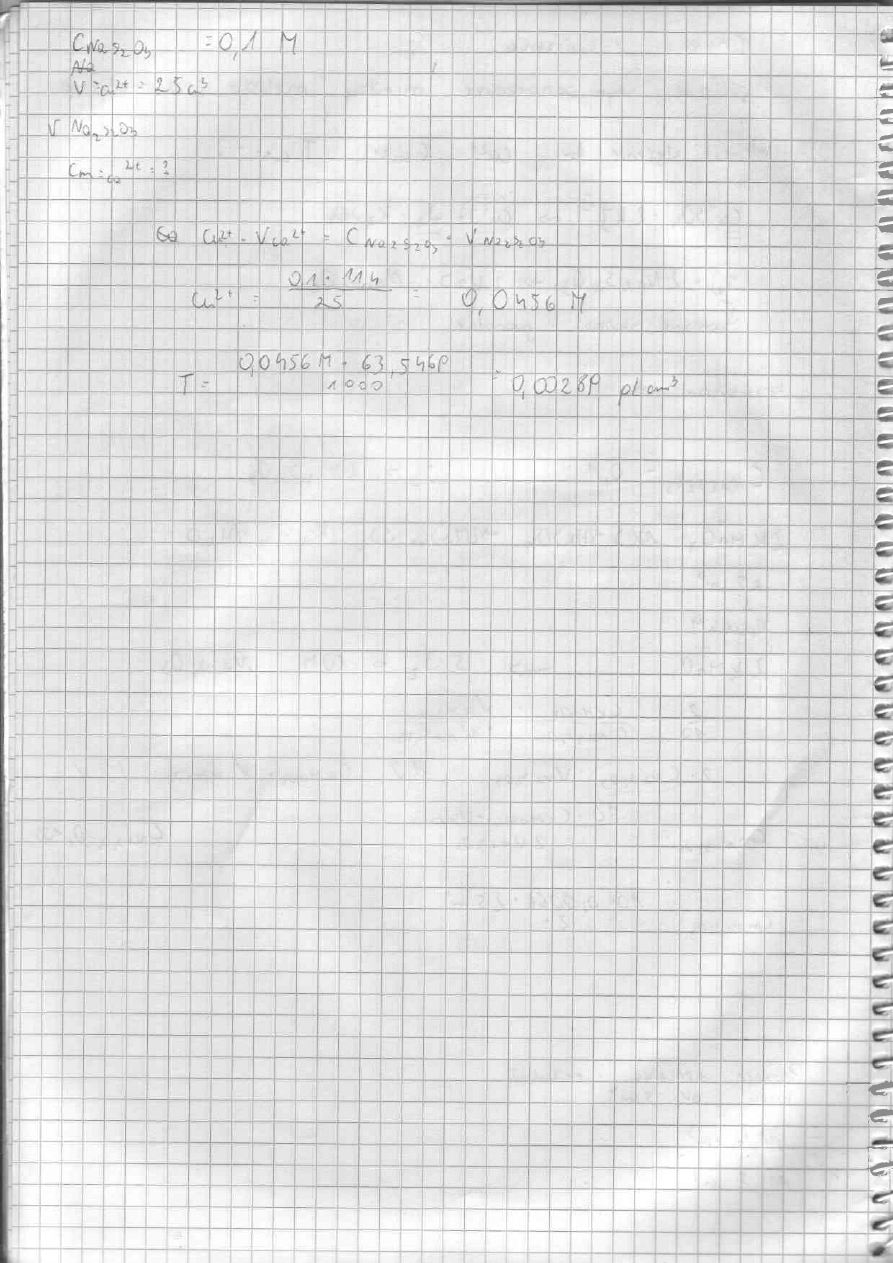 C Na₂S₂O₃ = 0,1 M
V Cu²⁺ = 25 cm³
V Na₂S₂O₃
Cm Cu²⁺ = ?
Cu²⁺ · V Cu²⁺ = C Na₂S₂O₃ · V Na₂S₂O₃
Cu²⁺ = 0,1 · 11,4 / 25 = 0,0456 M
T = 0,0456 M · 63,546 / 1000 = 0,0028